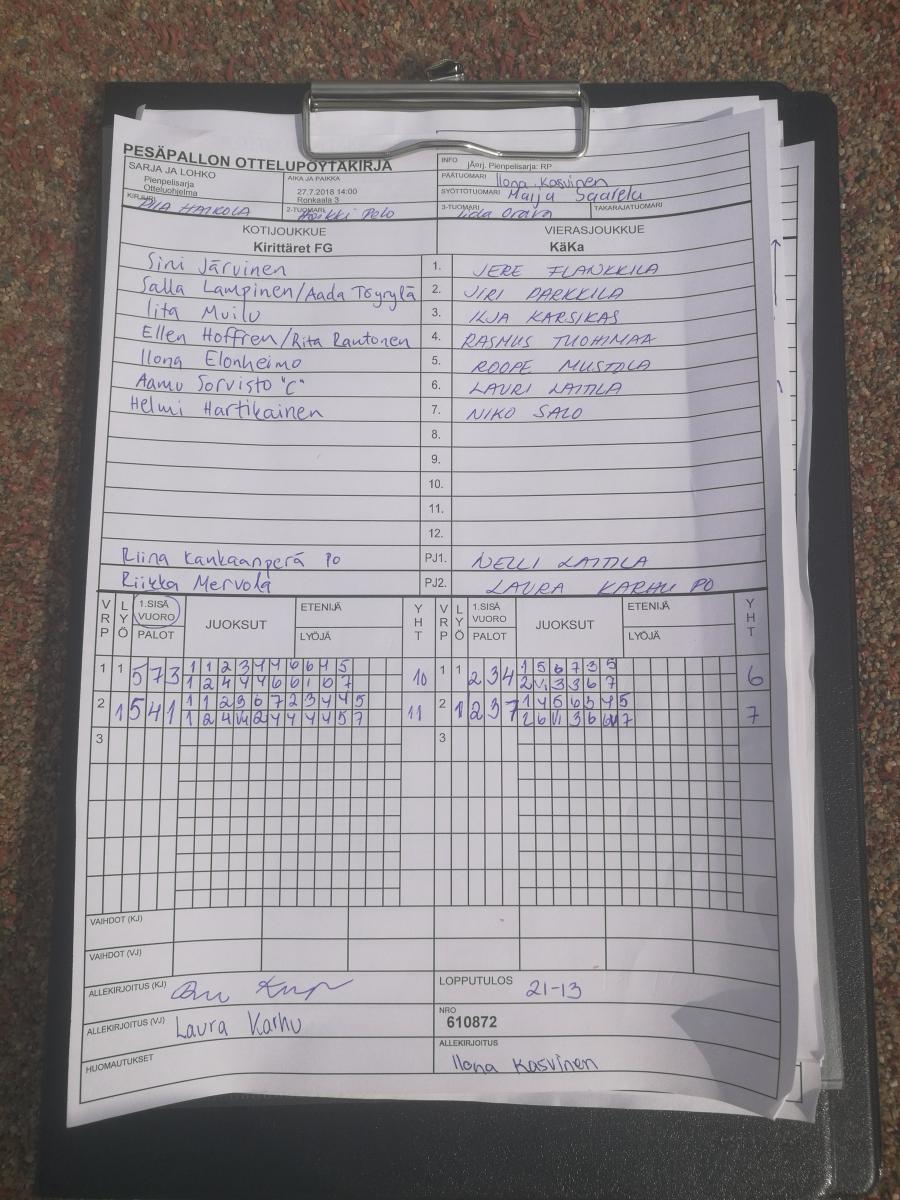 PESÄPALLON OTTELUPÖYTÄKIRJA
SARJA JA LOHKO
Pienpelisarja
Otteluohjelma
AIKA JA PAIKKA
27.7.2018 14:00
Ronkaala 3
INFO
jÄorj. Pienpelisarja: RP
PÄÄTUOMARI Ilona Kasvinen
SYÖTTÖTUOMARI Maiju Saarela
KIRJURI HAIKOLA
2-TUOMARI Heikki Pelo
3-TUOMARI Iida Orava
TAKARAJATUOMARI
KOTIJOUKKUE
Kirittäret FG
VIERASJOUKKUE
KäKa
Sini Järvinen 1. JERE FLANKKILA
Salla Lampinen/Aada Töyrylä 2. JIRI PARKKILA
Iita Muilu 3. ILJA KARSIKAS
Ellen Hoffren/Rita Rautonen 4. RASMUS TUOHIMAA
Ilona Elonheimo 5. ROOPE MUSTOLA
Aamu Sorvisto "C" 6. LAURI LAITILA
Helmi Hartikainen 7. NIKO SALO
8.
9.
10.
11.
12.
Riina Kankaanperä PO PJ1. NELLI LAITILA
Riikka Mervola PJ2. LAURA KARHU PO
VRP LYÖ 1.SISÄ VUORO PALOT JUOKSUT ETENIJÄ LYÖJÄ YHT VRP LYÖ 1.SISÄ VUORO PALOT JUOKSUT ETENIJÄ LYÖJÄ YHT
1 1 5 7 3 1 1 2 3 4 4 6 6 4 5 10 1 1 2 3 4 1 5 6 7 3 5 6
1 2 4 4 4 6 6 1 6 7 2 VI 3 3 6 7
2 1 5 4 1 1 1 2 3 6 7 2 3 4 4 5 11 2 1 2 3 7 1 4 5 6 5 4 5 7
1 2 4 VI 2 4 4 4 4 5 7 2 6 VI 3 6 VI 7
3 3
VAIHDOT (KJ)
VAIHDOT (VJ)
ALLEKIRJOITUS (KJ)
LOPPUTULOS 21-13
ALLEKIRJOITUS (VJ) Laura Karhu
NRO
610872
HUOMAUTUKSET
ALLEKIRJOITUS
Ilona Kasvinen